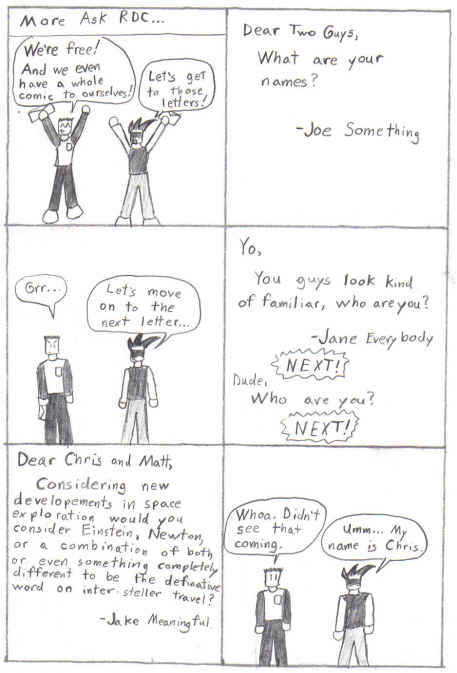 More Ask RDC...
We're free!
And we even
have a whole
comic to ourselves!
Let's get
to those
letters!
Dear Two Guys,
What are your
names?
-Joe Something
Grr...
Let's move
on to the
next letter...
Yo,
You guys look kind
of familiar, who are you?
-Jane Everybody
NEXT!
Dude,
Who are you?
NEXT!
Dear Chris and Matt,
Considering new
developements in space
exploration would you
consider Einstein, Newton,
or a combination of both
or even something completely
different to be the definative
word on inter-steller travel?
-Jake Meaningful
Whoa. Didn't
see that
coming.
Umm... My
name is Chris.